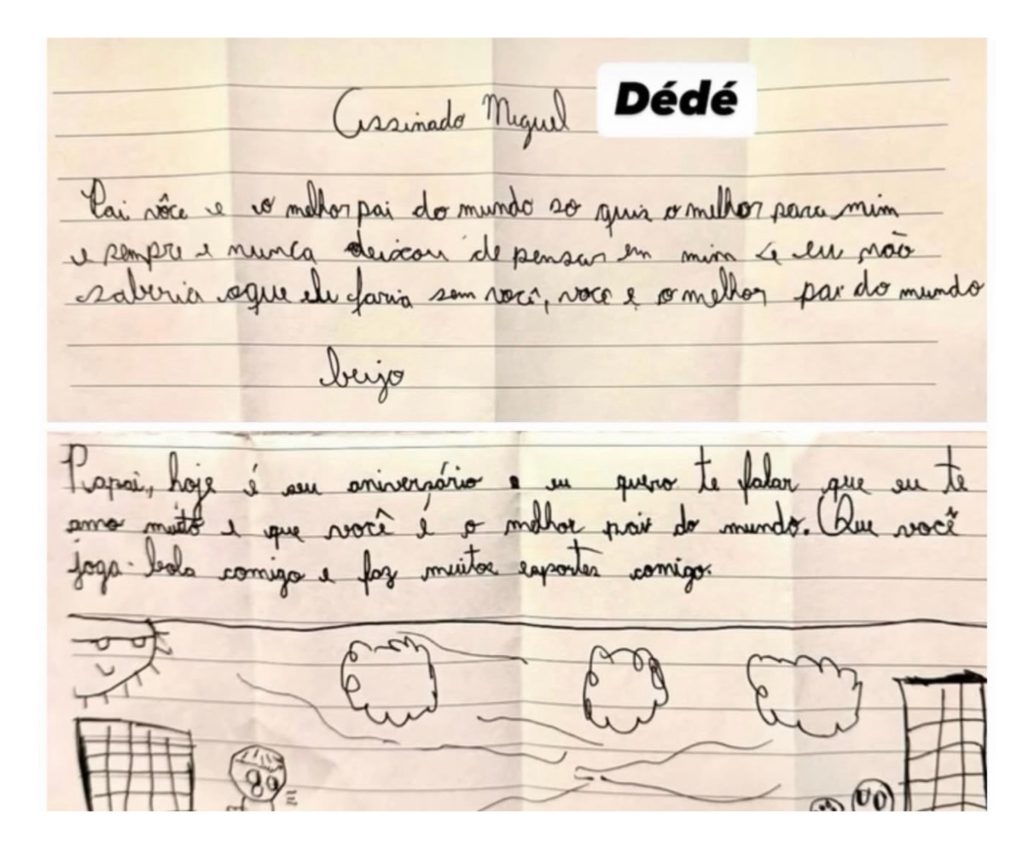 Assinado Miguel Dédé
Pai vôce e o melhor pai do mundo so quis o melhor para mim
e sempre e nunca deixou de pensar em mim e eu não
saberia oque eu faria sem você, voce e o melhor pai do mundo
beijo
Papai, hoje é seu aniversário e eu quero te falar que eu te
amo muito e que você é o melhor pai do mundo. Que você
joga bola comigo e faz muitos esportes comigo.